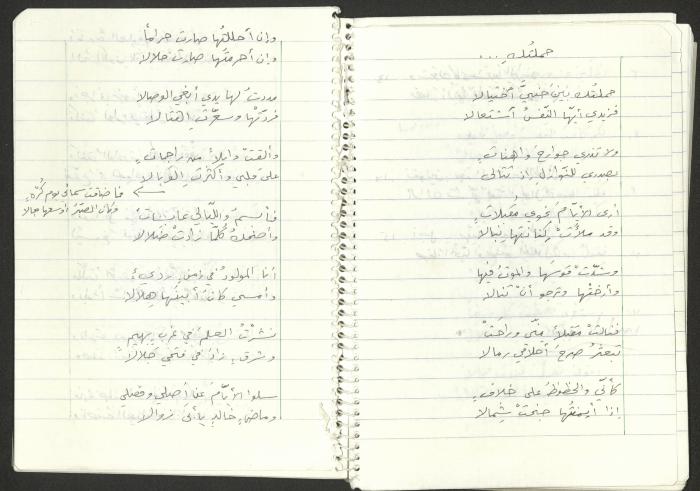 حملتُكِ ...
حملتُكِ بينَ جنبيَّ اختيالا
فزيدي أيّها النّفسُ اشتعالا
ولا تذري جوارحَ واهناتٍ
بصدري للنّوازل أن تُذالى
أرى الأيّامَ نحوي مقبلاتٍ
وقد ملأتْ كنانتَها نِبالا
وشدّت قوسَها والموتُ فيها
وأرختْها وترجو أنْ تنالا
فنالتْ مقتلاً منّي وراحتْ
تبعثر صرحَ أخلاقي رمالا
كأنّي والحظوظُ على خلافٍ
إذا أيمنتُها جنحتْ شمالا
وإن أحللتُها صارت حراماً
وإن أحرمتُها صارت حلالا
مددتُ لها يدي أبغي الوصالا
فردّتْها وسعّرتِ اهتبالا
وألقتْ وابلاً من راجماتٍ
على قلبي وأكثرتِ الوبالا
فما ضاقت سمائي يوم كُرّهٍ
وكان الصبرُ أوسعها مجالا
فأبسمُ والليالي عابساتٌ
وأصمدُ كلّما زادتْ ضلالا
أنا المولودُ في زمنٍ رديءٍ
وأمسي كان أبينَها هلالا
نشرتُ العلمَ في غربٍ بهيمٍ
وشرقٍ زادَ في فتحي جلالا
سلوا الأيّامَ عن أصلي وفصلي
وماضٍ خالدٍ يأبى زوالا